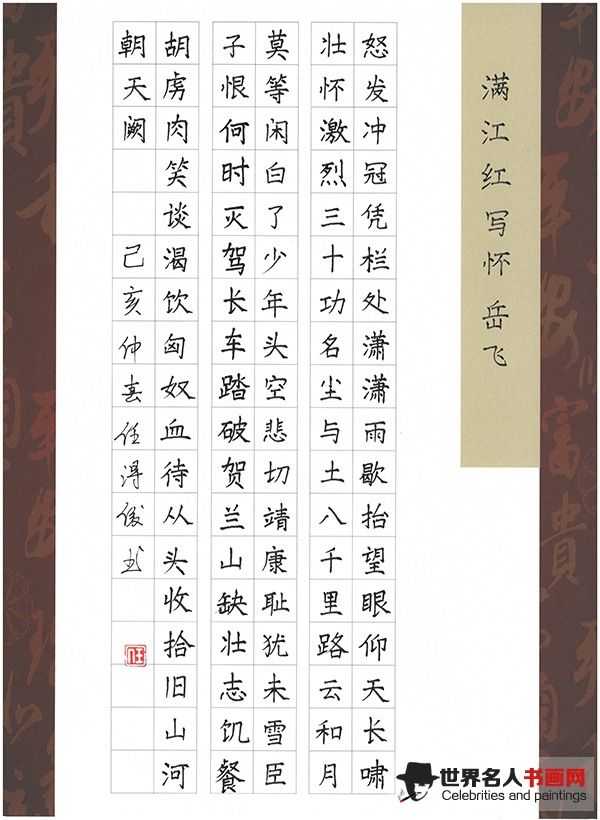 满江红 写怀 岳飞
怒发冲冠凭栏处潇潇雨歇抬望眼仰天长啸
壮怀激烈三十功名尘与土八千里路云和月
莫等闲白了少年头空悲切靖康耻犹未雪臣
子恨何时灭驾长车踏破贺兰山缺壮志饥餐
胡虏肉笑谈渴饮匈奴血待从头收拾旧山河
朝天阙
己亥仲春任得俊书
富貴
世界名人书画网
Celebrities and paintings